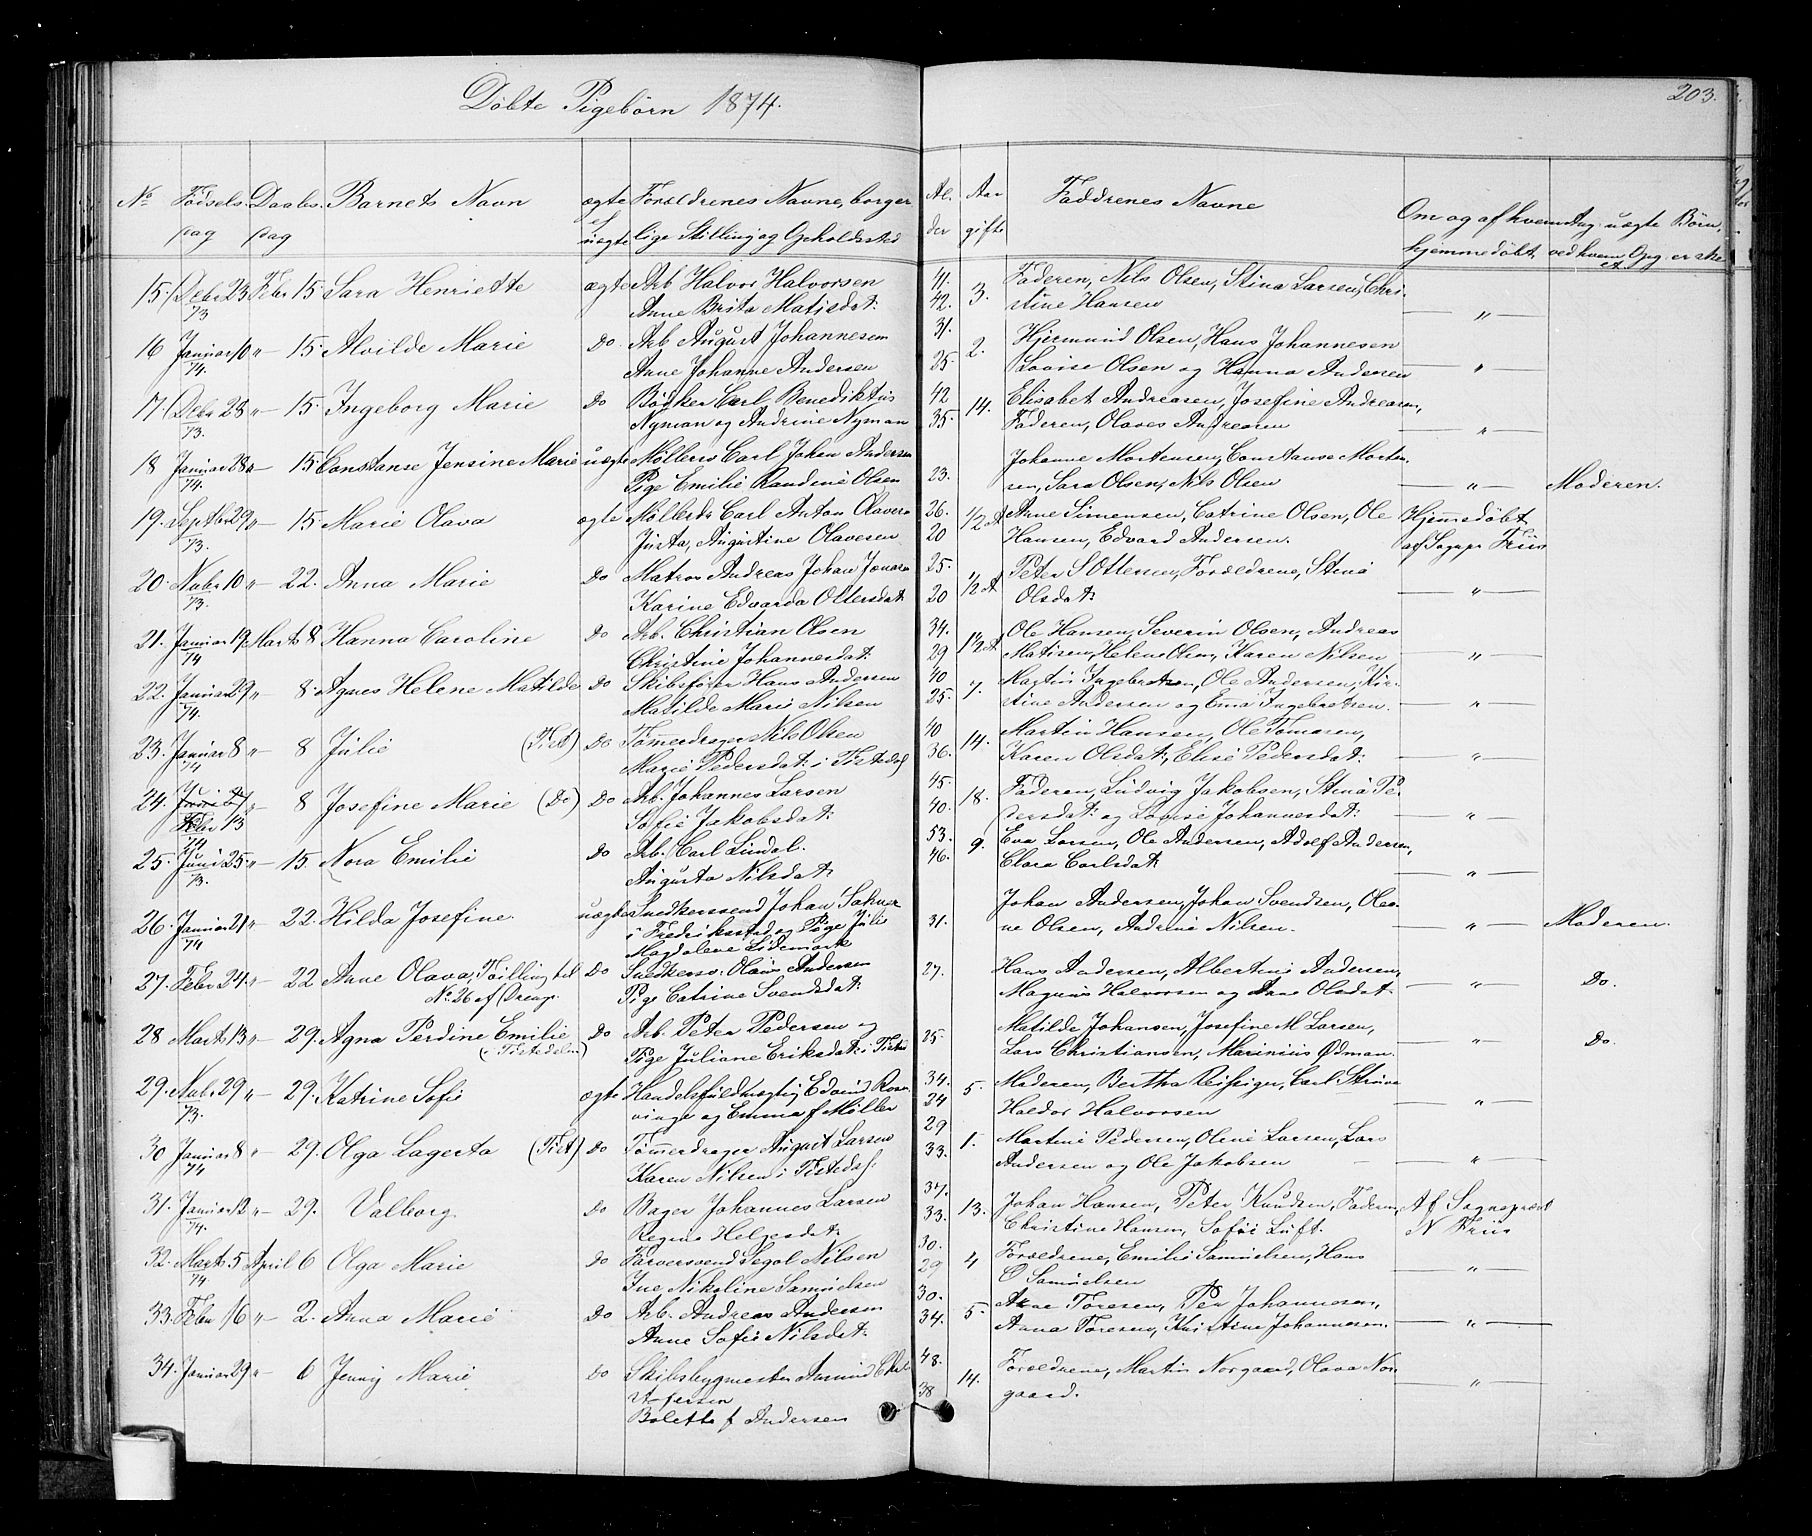 Döbte Pigebörn 1874.
203.
No Fødsels Daabs Barnets Navn ægte Forældrenes Navne, borger Al Aar Faddrenes Navne
dag dag el uægte lige Stilling og Opholdssted der gifte Om og af hvem hjemmedøbt Ang. uægte Börn, ved hvem Opg. er ske
15. Debr 23 Febr 15 Sara Henriette ægte Arb Halvor Halvorsen 41. 3. Faderen, Nils Olsen, Stina Larsen, Chri-
73 Anne Brita Matisdat: 42. stine Hansen — " —
16 Januar 10 " 15. Alvilde Marie Do. Arb August Johannesen 31. 2. Hjermund Olsen, Hans Johannesen
74. Anne Johanne Andersen 25. Lovise Olsen og Hanna Andersen — " —
17. Debr 28 " 15. Ingeborg Marie Do Bödker Carl Benediktus 42 14. Elisabet Andreasen, Josefine Andreasen,
73. Nyman og Andrine Nyman 35. Faderen, Olaves Andreasen — " —
18 Januar 28 " 15 Constanse Jensine Marie uægte Møllers Carl Johan Andersen Johanne Mortensen, Constanse Morten-
74. Pige Emilie Randine Olsen 23. sen, Sara Olsen, Nils Olsen — " — Moderen.
19. Septbr 29 " 15. Marie Olava ægte Møllerdr Carl Anton Olavesen 26. 1/2 A Anne Simensen, Catrine Olsen, Ole Hjemedøbt
73. Justa, Augustine Olavesen 20 Hansen, Edvard Andersen. af Sognpr Friis
20. Nobr 10 " 22. Anna Marie Do Matros Andreas Johan Jonasen 25. 1/2 A Peter S Ottersen, Forældrene, Stina
73. Karine Edvarda Ottersdat: 20 Olsdat: — " —
21. Januar 19 Marts 8 Hanna Caroline Do Arb. Christian Olsen 34. 1 1/2 A Ole Hansen, Severin Olsen, Andreas
74 Christine Johannesdat: 29 Matisen, Helene Olsen, Karen Nilsen "
22. Januar 29 " 8 Agnes Helene Matilde Do Skibsfører Hans Andersen 40 7. Martin Ingebretsen, Ole Andersen, Kir-
74. Matilde Marie Nilsen 25. stine Andersen og Ema Ingebretsen. — " —
23. Januar 8 " 8 Julie (Tist) Do Tömerdrager Nils Olsen 40 14. Martin Hansen, Ole Tomasen,
74 Marie Pedersdat: i Tistedal 36. Karen Olsdat:, Elise Pedersdat: — " —
24. " 8 Josefine Marie (Do) Do Arb. Johannes Larsen 45. 18. Faderen, Ludvig Jakobsen, Stina Pe-
Febr 13 74 Sofie Jakobsdat: 40. dersdat: og Lovise Johannesdat: — " —
25. Juni 25. " 15 Nora Emilie Do Arb. Carl Lindal. 53. 9. Eva Larsen, Ole Andersen, Adolf Andersen,
73. Augusta Nilsdat: 46. Clara Carlsdat: — " —
26. Januar 21 " 22. Hilda Josefine. uægte Snedkersvend Johan Johan Andersen, Johan Svendsen, Ole-
74 i Fredriksstad og Pige Julie 31. ne Olsen, Andrine Nilsen. — " — Moderen.
Magdalene Lidemark
27. Febr 24. " 22 Anne Olava, Tvilling til Do Snedkersv. Olaus Andersen 27. Hans Andersen, Albertine Andersen,
No 26 af Drenge. Pige Catrine Svendsdat: Magnus Halvorsen og Ane Olsdat. — " — Do.
28 Marts 13 " 29. Agna Perdine Emilie Do Arb. Peter Pedersen og Matilde Johansen, Josefine M Larsen,
(Tistedalen) Pige Juliane Eriksdat: i Tisted 25. Lars Christiansen, Marinius Ødman. — " — Do.
29. Nobr 29 " 29. Katrine Sofie ægte Handelsfuldmægtig Edvind Rosen- 34. 5. Moderen, Bertha Reissiger, Carl Strüve
73. vinge og Emma f Møller 24 Haldor Halvorsen — " —
30 Januar 8 " 29. Olga Lagerta (Tist) Do Tömerdrager August Larsen 29 1. Martine Pedersen, Oline Larsen, Lars
74 Karen Nilsen i Tistedal 33. Andersen og Ole Jakobsen — " —
31. Januar 12 " 29. Valborg Do Bager Johannes Larsen 37. 13. Johan Hansen, Peter Knudsen, Faderen, Af Sogneprest
74. Regine Helgesdat: 33. Christine Hansen, Sofie Luft. N Friis
32. Marts 5 April 6 Olga Marie Do Farversvend Segol Nilsen 30. 4 Forældrene, Emilie Samuelsen, Hans
74 Ine Nikoline Samuelsen 29 O Samuelsen — " —
33. Febr 16 " 2. Anna Marie Do Arb. Andreas Andersen 30. 5. Anne Toresen, Per Johannesen,
Anne Sofie Nilsdat: 34. Anna Toresen, Kristine Johannesen. — " —
34. Januar 29 " 6 Jenny Marie Do Skibsbygmester Amund 48. 14. Forældrene, Martin Norgaard, Olava Nor-
38 gaard. — " —
Bolette f Andersen